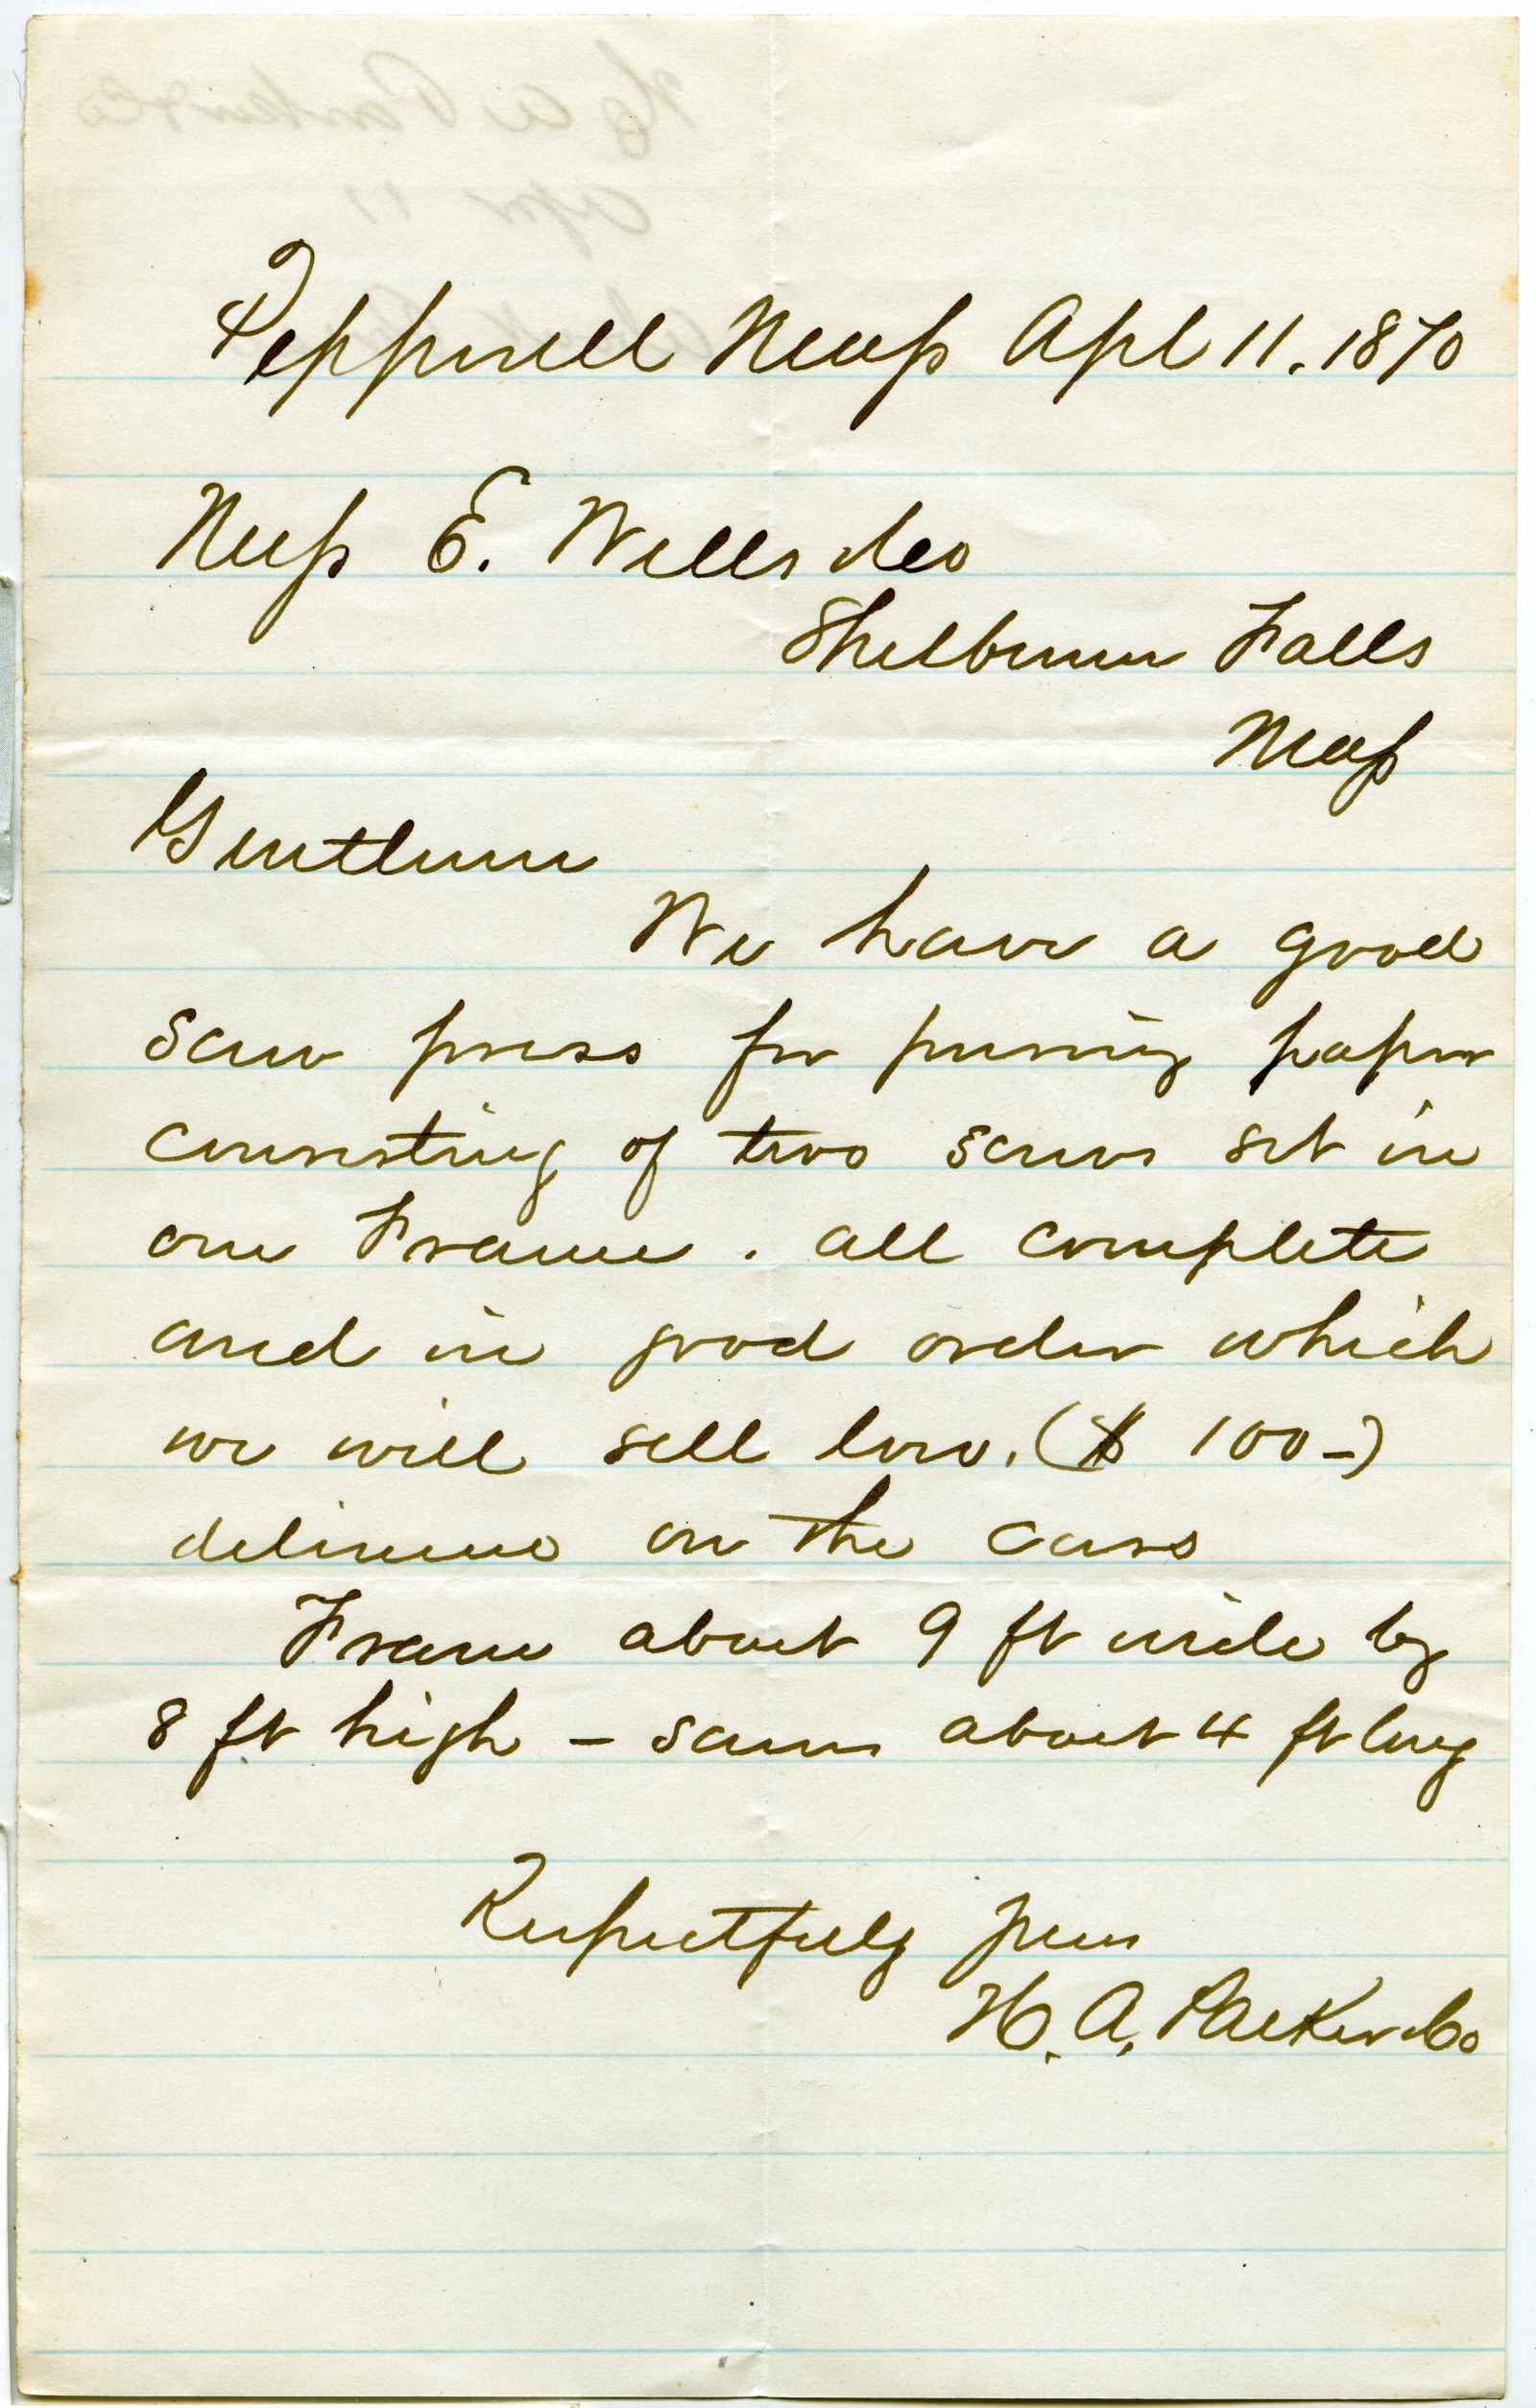 Pepperell Mass Apl 11. 1870
Mess E. Wells & Co
Shelburn Falls
Mass
Gentlemen
We have a good
screw press for pressing paper
consisting of two screws set in
one Frame. all complete
and in good order which
we will sell low. ($ 100-)
delivered on the cars
Frame about 9 ft wide by
8 ft high - screws about 4 ft long
Respectfully yours
H. A. Parker & Co